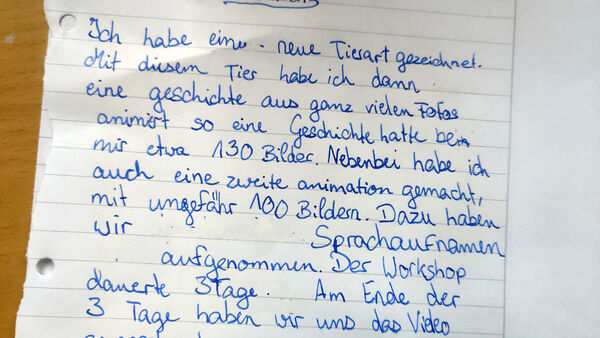 Ich habe eine neue Tierart gezeichnet.
Mit diesem Tier habe ich dann
eine geschichte aus ganz vielen Fotos
animirt so eine Geschichte hatte bei
mir etwa 130 Bilder. Nebenbei habe ich
auch eine zweite animation gemacht,
mit ungefähr 100 Bildern. Dazu haben
wir Sprachaufnamen
aufgenommen. Der Workshop
dauerte 3 Tage. Am Ende der
3 Tage haben wir uns das Video